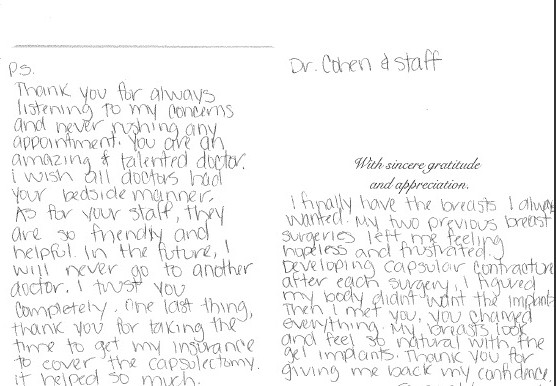 Dr. Cohen & staff
With sincere gratitude
and appreciation.
I finally have the breasts I always
wanted. My two previous breast
surgeries left me feeling
hopeless and frustrated.
Developing capsular contracture
after each surgery, I figured
my body didn't want the implants
Then I met you, you changed
everything. My breasts look
and feel so natural with the
gel implants. Thank you for
giving me back my confidence.
PS.
Thank you for always
listening to my concerns
and never rushing any
appointment. You are an
amazing & talented doctor.
I wish all doctors had
your bedside manner.
As for your staff, they
are so friendly and
helpful. In the future, I
will never go to another
doctor. I trust you
completely. One last thing,
thank you for taking the
time to get my insurance
to cover the capsulectomy.
it helped so much.